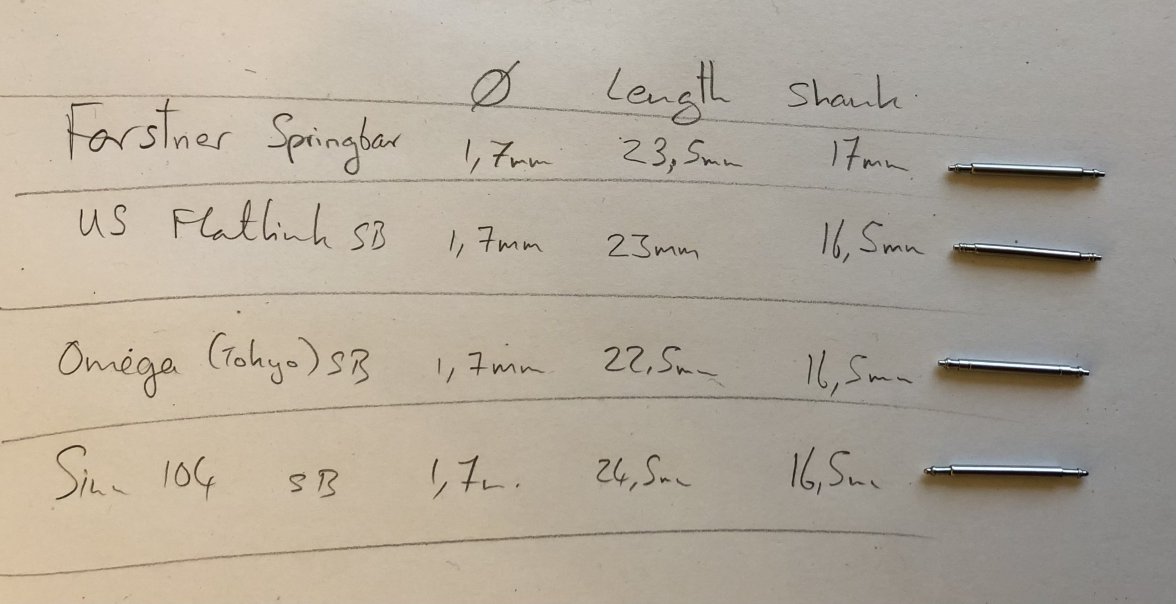 Ø Length Shank
Forstner Springbar 1,7mm 23,5mm 17mm
US Flatlink SB 1,7mm 23mm 16,5mm
Omega (Tokyo) SB 1,7mm 22,5mm 16,5mm
Sinn 104 SB 1,7m. 24,5mm 16,5mm